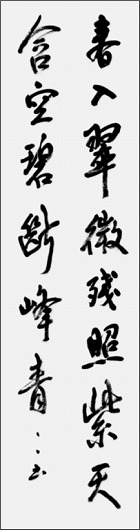 春入翠微残照紫天
含空碧断峰青